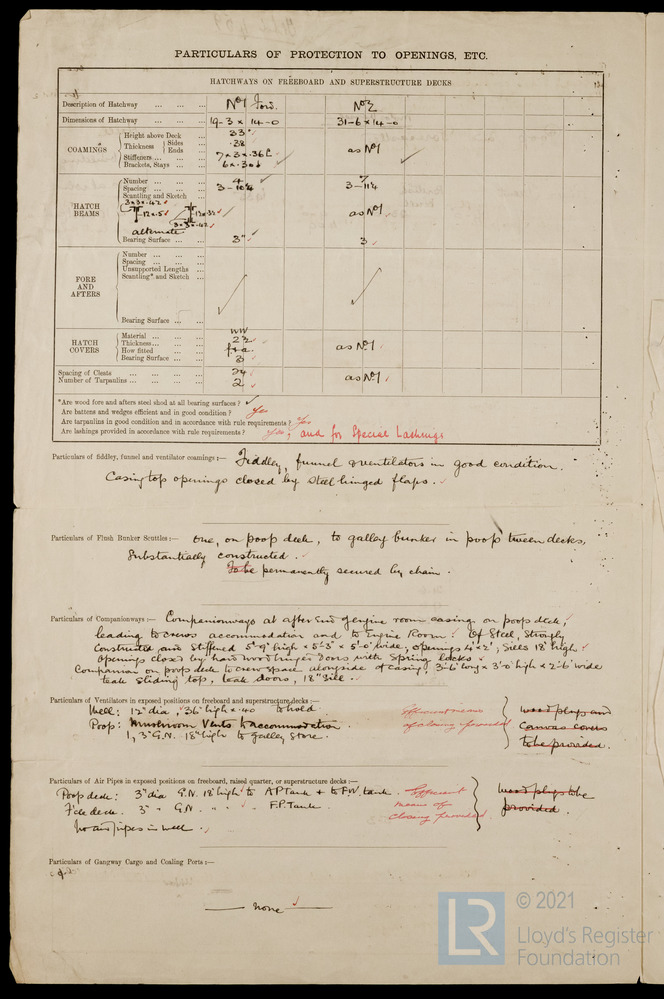 PARTICULARS OF PROTECTION TO OPENINGS, ETC.
HATCHWAYS ON FREEBOARD AND SUPERSTRUCTURE DECKS
Description of Hatchway ... ... ... No1 Ford. No2
Dimensions of Hatchway ... ... ... 19-3 x 14-0 31-6 x 14-0
COAMINGS
Height above Deck ... 33"
Thickness { Sides ... .38
Ends ... as No1
Stiffeners ... ... ... 7 x 3 x .36
Brackets, Stays ... ...
HATCH BEAMS
Number ... ... ... 4 7
Spacing ... ... ... 3-11¼
Scantling and Sketch ...
3x3x.42
as No1
3x3x.42
alternate
Bearing Surface ... ... 3" 3
FORE AND AFTERS
Number ... ... ...
Spacing ... ... ...
Unsupported Lengths ...
Scantling* and Sketch ...
Bearing Surface ... ...
HATCH COVERS
Material ... ... ... WW
Thickness ... ... ... 2½
How fitted ... ... f & a as No1
Bearing Surface ... ... 3
Spacing of Cleats ... ... ... ... 24
Number of Tarpaulins ... ... ... ... 2 as No1
*Are wood fore and afters steel shod at all bearing surfaces?
Are battens and wedges efficient and in good condition? Yes
Are tarpaulins in good condition and in accordance with rule requirements? Yes
Are lashings provided in accordance with rule requirements? Yes, and for Special Lashings
Particulars of fiddley, funnel and ventilator coamings:— Fiddley, funnel & ventilators in good condition.
Casing top openings closed by steel hinged flaps.
Particulars of Flush Bunker Scuttles:— One, on poop deck, to galley bunker in poop tween decks,
Substantially constructed.
To be permanently secured by chain.
Particulars of Companionways:— Companionways at after end of engine room casing on poop deck,
leading to crews accommodation and to Engine Room. Of Steel, Strongly
Constructed and Stiffened 5'-9" high x 5'-3" x 5'-0" wide; openings 4' x 2'; Sills 18" high
openings closed by hard wood hinged doors with Spring locks.
Companion on poop deck to crew space alongside of casing, 3'-6" long x 3'-0" high x 2'-6" wide
teak sliding top, teak doors, 18" Sill.
Particulars of Ventilators in exposed positions on freeboard and superstructure decks:—
Well: 12" dia, 36" high x .40 to hold.
Poop: Mushroom Vents to accommodation.
1, 3" G.N. 18" high to galley store.
Efficient means
of closing provided
wood plugs and
canvas covers
to be provided.
Particulars of Air Pipes in exposed positions on freeboard, raised quarter, or superstructure decks:—
Poop deck: 3" dia G.N. 18" high to AP Tank & to F.W. tank.
F'cle deck. 3" " G.N. " " " F.P. Tank.
No air pipes in well.
Efficient
means of
closing provided
wood plugs to be
provided.
Particulars of Gangway Cargo and Coaling Ports:—
None
LR
© 2021
Lloyd's Register
Foundation